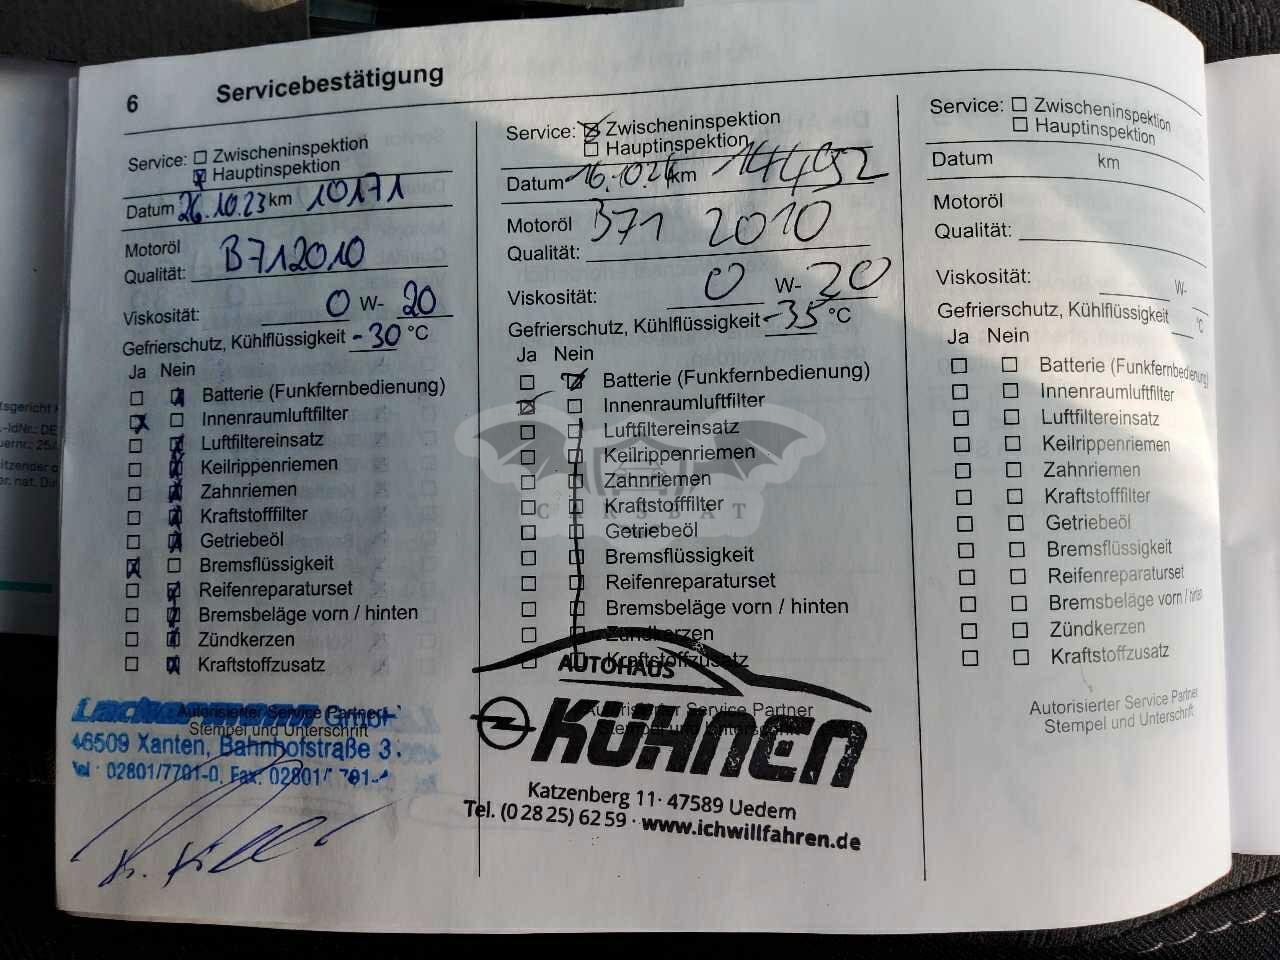 6 Servicebestätigung
Service: Zwischeninspektion
Hauptinspektion
Datum 26.10.23 km 10171
Motoröl
Qualität: B712010
Viskosität: 0 W- 20
Gefrierschutz, Kühlflüssigkeit -30 °C
Ja Nein
Batterie (Funkfernbedienung)
Innenraumluftfilter
Luftfiltereinsatz
Keilrippenriemen
Zahnriemen
Kraftstofffilter
Getriebeöl
Bremsflüssigkeit
Reifenreparaturset
Bremsbeläge vorn / hinten
Zündkerzen
Kraftstoffzusatz
Autorisierter Service Partner
Stempel und Unterschrift
GmbH
46509 Xanten, Bahnhofstraße 3
Tel : 02801/7701-0, Fax: 02801/
Service: Zwischeninspektion
Hauptinspektion
Datum 16.10.24 km 14492
Motoröl
Qualität: B71 2010
Viskosität: 0 W- 20
Gefrierschutz, Kühlflüssigkeit -35 °C
Ja Nein
Batterie (Funkfernbedienung)
Innenraumluftfilter
Luftfiltereinsatz
Keilrippenriemen
Zahnriemen
Kraftstofffilter
Getriebeöl
Bremsflüssigkeit
Reifenreparaturset
Bremsbeläge vorn / hinten
Zündkerzen
Kraftstoffzusatz
Autorisierter Service Partner
Stempel und Unterschrift
AUTOHAUS
KÜHNEN
Katzenberg 11 · 47589 Uedem
Tel. (0 28 25) 62 59 · www.ichwillfahren.de
Service: Zwischeninspektion
Hauptinspektion
Datum km
Motoröl
Qualität:
Viskosität: W-
Gefrierschutz, Kühlflüssigkeit °C
Ja Nein
Batterie (Funkfernbedienung)
Innenraumluftfilter
Luftfiltereinsatz
Keilrippenriemen
Zahnriemen
Kraftstofffilter
Getriebeöl
Bremsflüssigkeit
Reifenreparaturset
Bremsbeläge vorn / hinten
Zündkerzen
Kraftstoffzusatz
Autorisierter Service Partner
Stempel und Unterschrift
CARSBAT